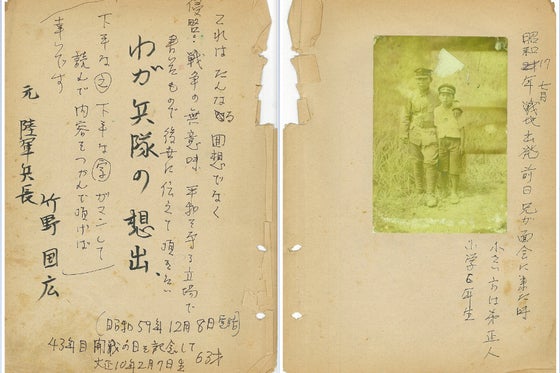 昭和17年七月戦地出発前日兄が面会に来た時
小さい方は弟正人
小学6年生
これはたんなる回想でなく
侵略戦争の無意味 平和を守る立場で
書いたもので後世に伝えて頂きたい
わが兵隊の想出、
下手な文 下手な字がマンして
読んで内容をつかんで頂ければ
幸いです
元 陸軍兵長
竹野国広
(昭和59年12月8日完結)
43年目開戦の日を記念して
大正10年2月7日生 63才